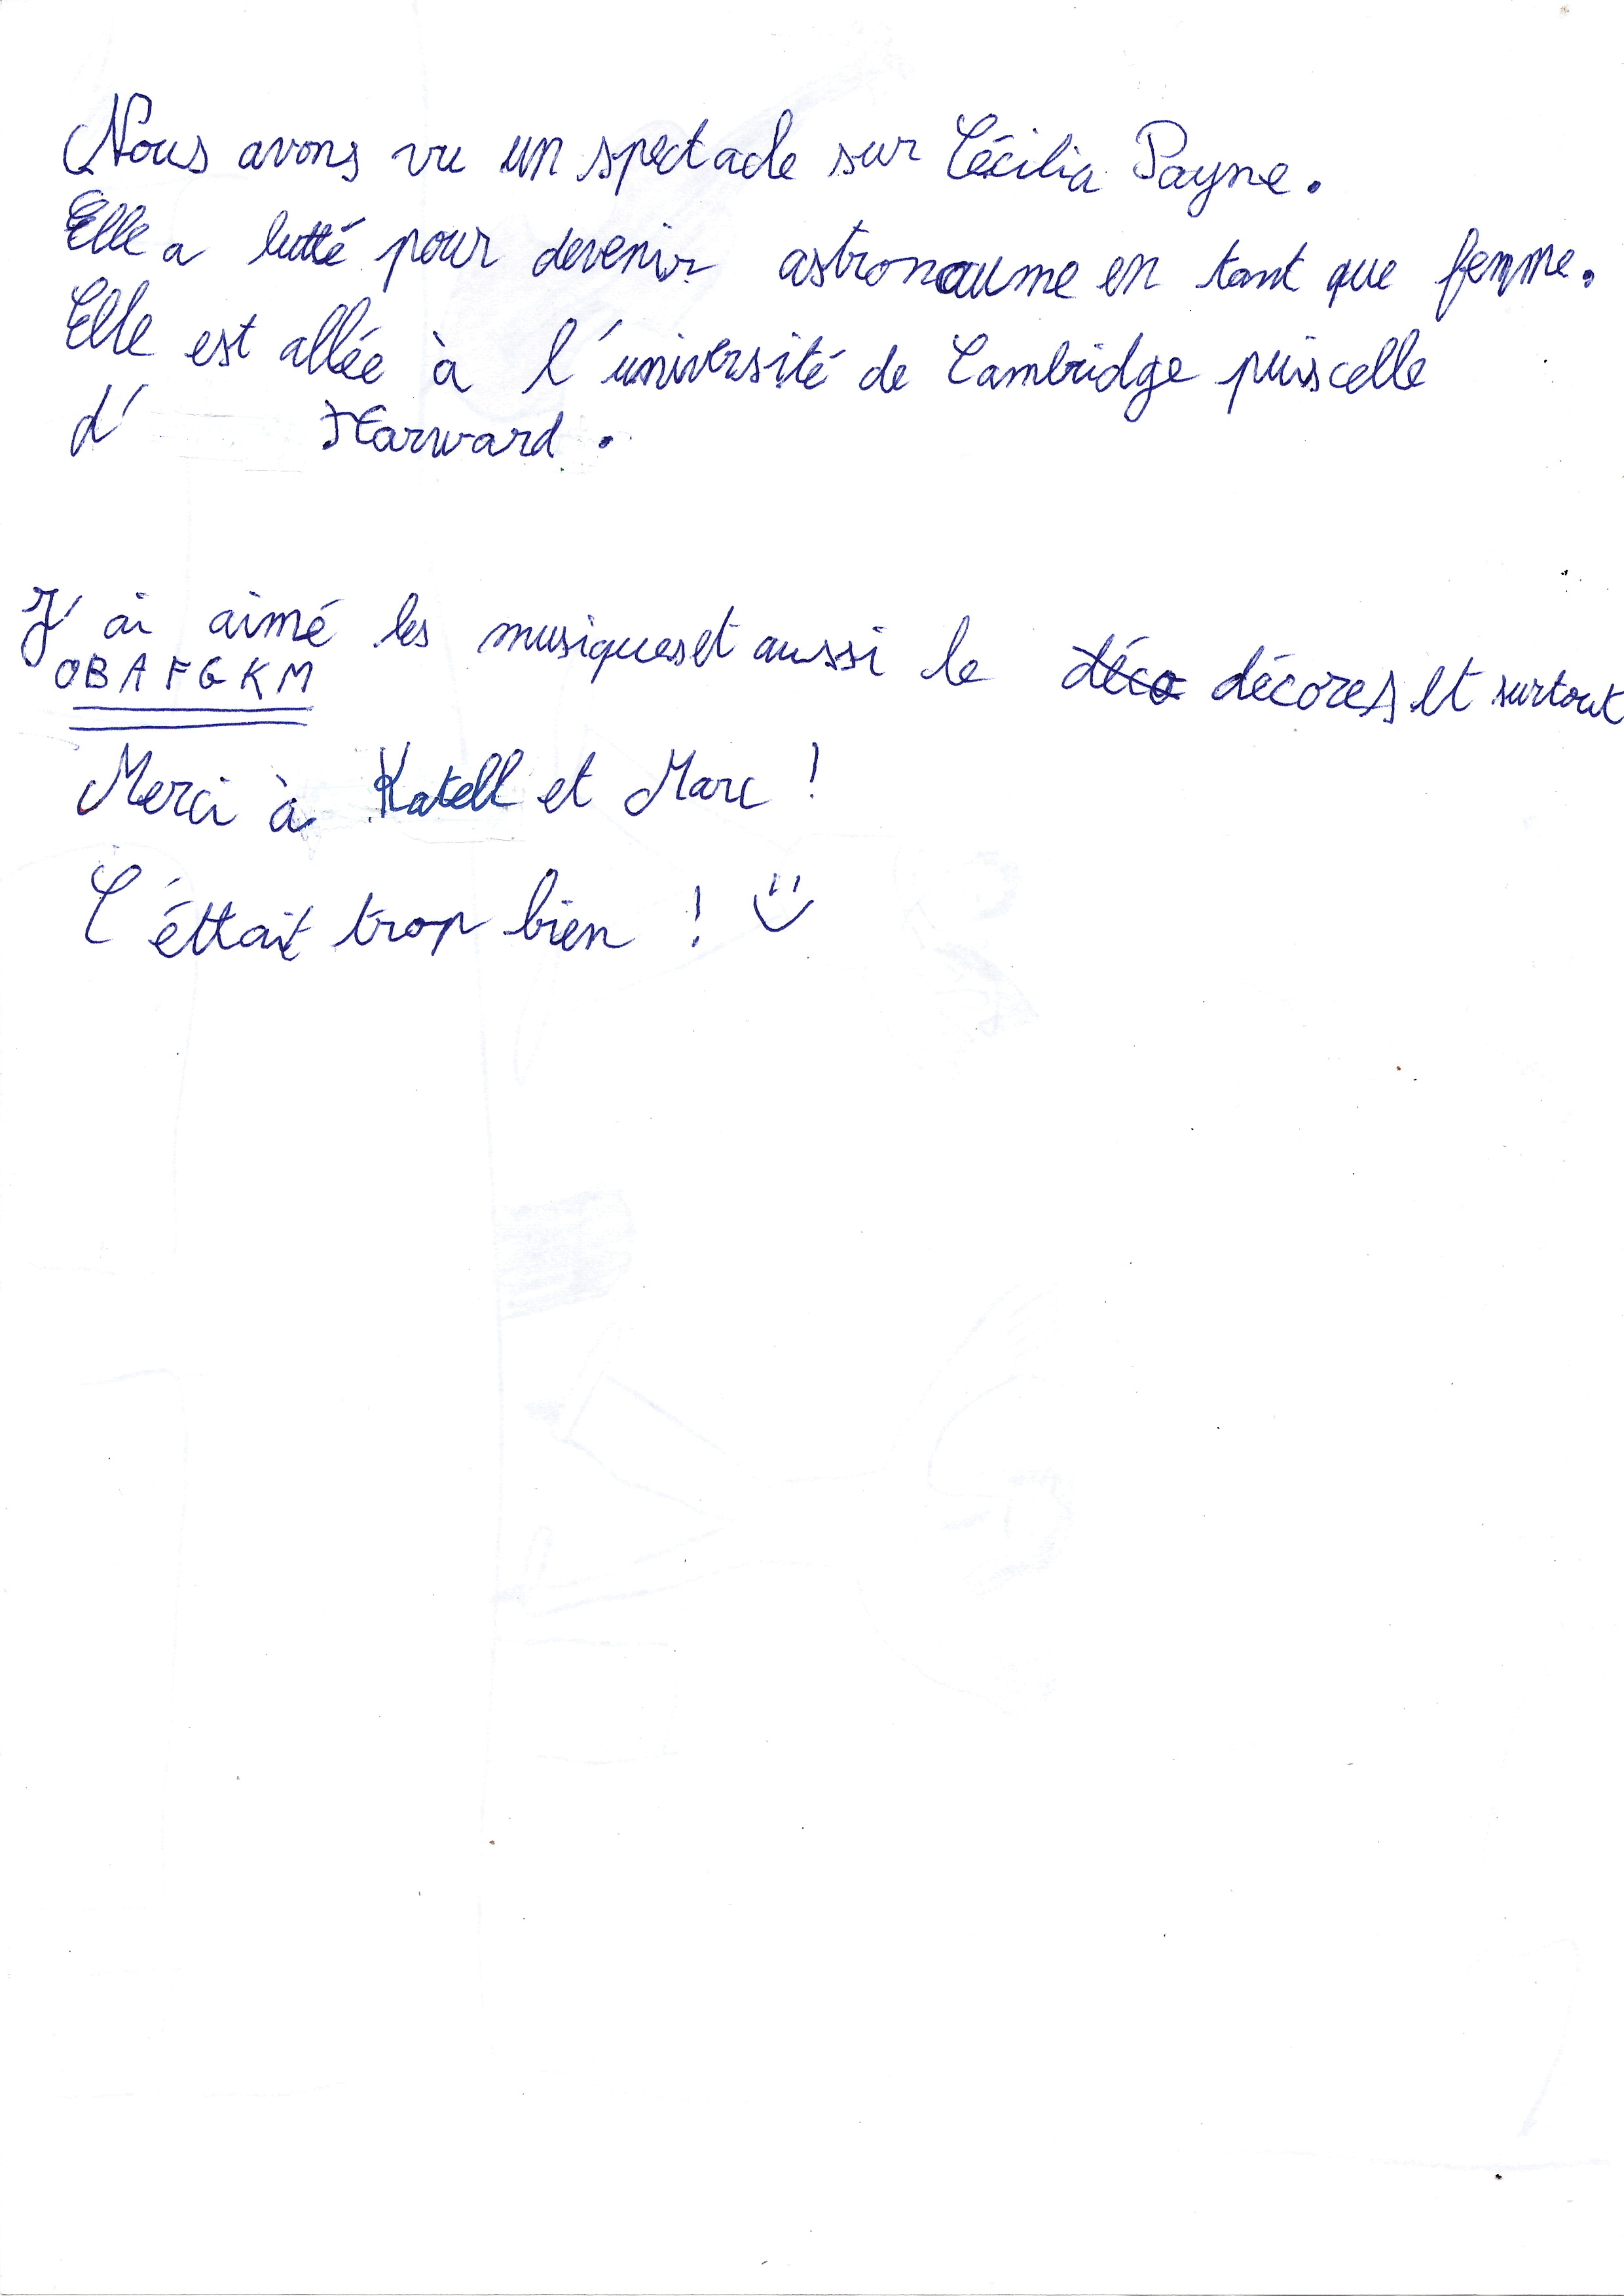 Nous avons vu un spectacle sur Cécilia Payne.
Elle a lutté pour devenir astronaume en tant que femme.
Elle est allée à l'université de Cambridge puis celle
d' Harward.
J'ai aimé les musiques et aussi le déco décores et surtout
OBAFGKM
Merci à Katell et Marc !
C'éttait trop bien !